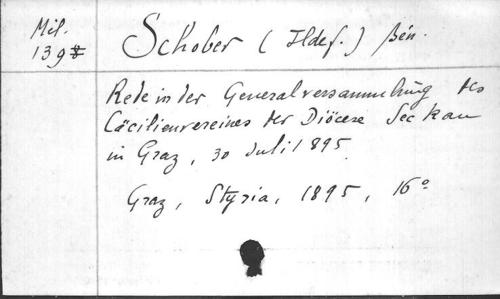 Mil.
139
Schober (Ildef.) Bén.
Rede in der Generalversammlung des
Cäcilienvereines der Diöcese Seckau
in Graz, 30 Juli 1895
Graz, Styria, 1895, 16°